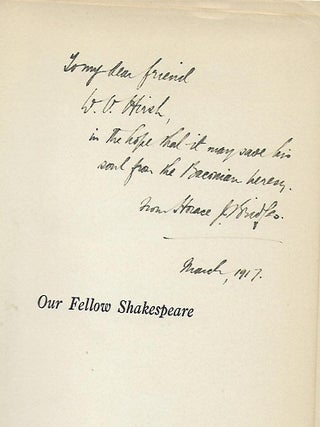 To my dear friend
W. O. Hirsh,
in the hope that it may save his
soul from the Baconian heresy.
from Horace J. Bridges.
March, 1917.
Our Fellow Shakespeare